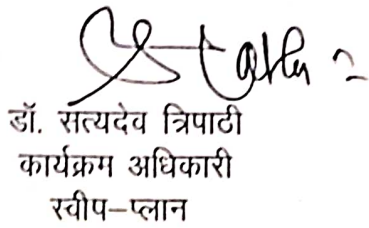 डॉ. सत्यदेव त्रिपाठी
कार्यक्रम अधिकारी
स्वीप-प्लान